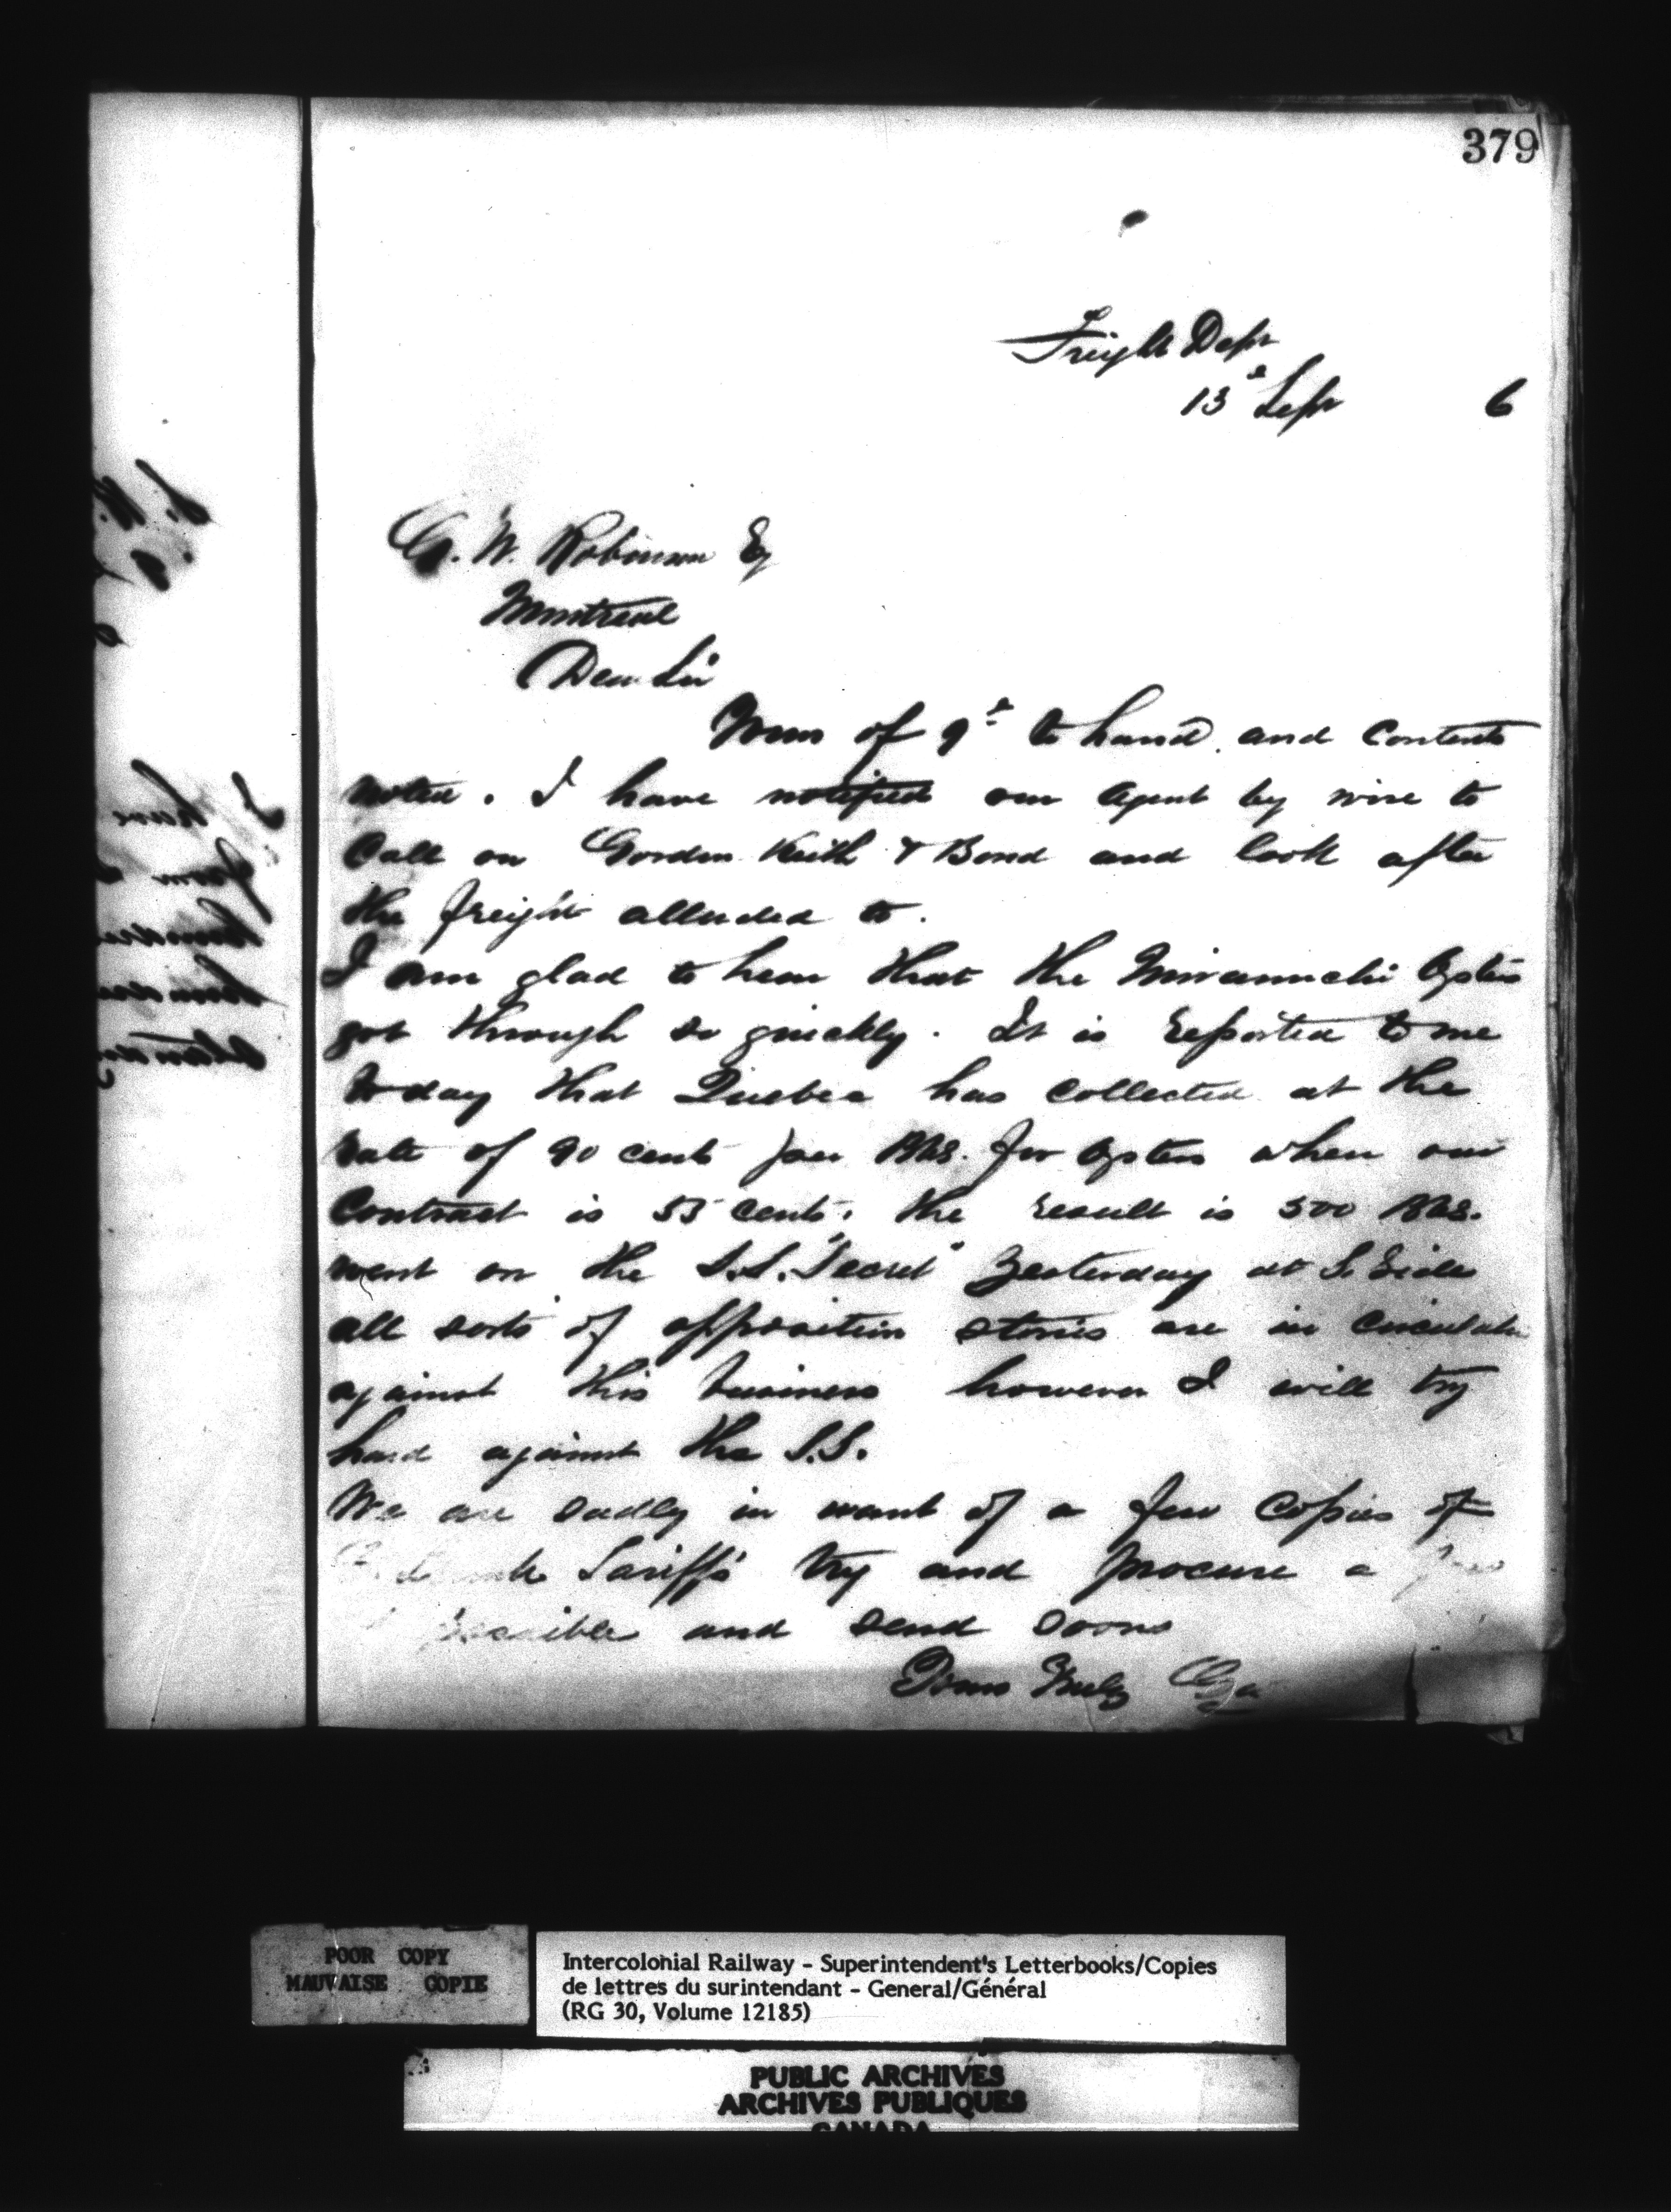 379
Freight Dept
13th Sept 6
G. W. Robinson Esq
Montreal
Dear Sir
Yours of 9th to hand and contents
noted. I have notified our Agent by wire to
Call on Gordon Keith & Bond and look after
the freight alluded to.
I am glad to hear that the Miramichi Oysters
got through so quickly. It is reported to me
today that Quebec has collected at the
rate of 90 cents per Bbls. for Oysters when our
Contract is 55 cents. the result is 500 Bbls.
went on the S.S. "Secret" Yesterday at
all sorts of opposition stories are in
against this business however I will try
hard against the S.S.
We are sadly in want of a few copies of
Tariffs try and procure a few
possible and send soon
Yours Truly
POOR COPY
MAUVAISE COPIE
Intercolonial Railway - Superintendent's Letterbooks/Copies
de lettres du surintendant - General/Général
(RG 30, Volume 12185)
PUBLIC ARCHIVES
ARCHIVES PUBLIQUES
CANADA